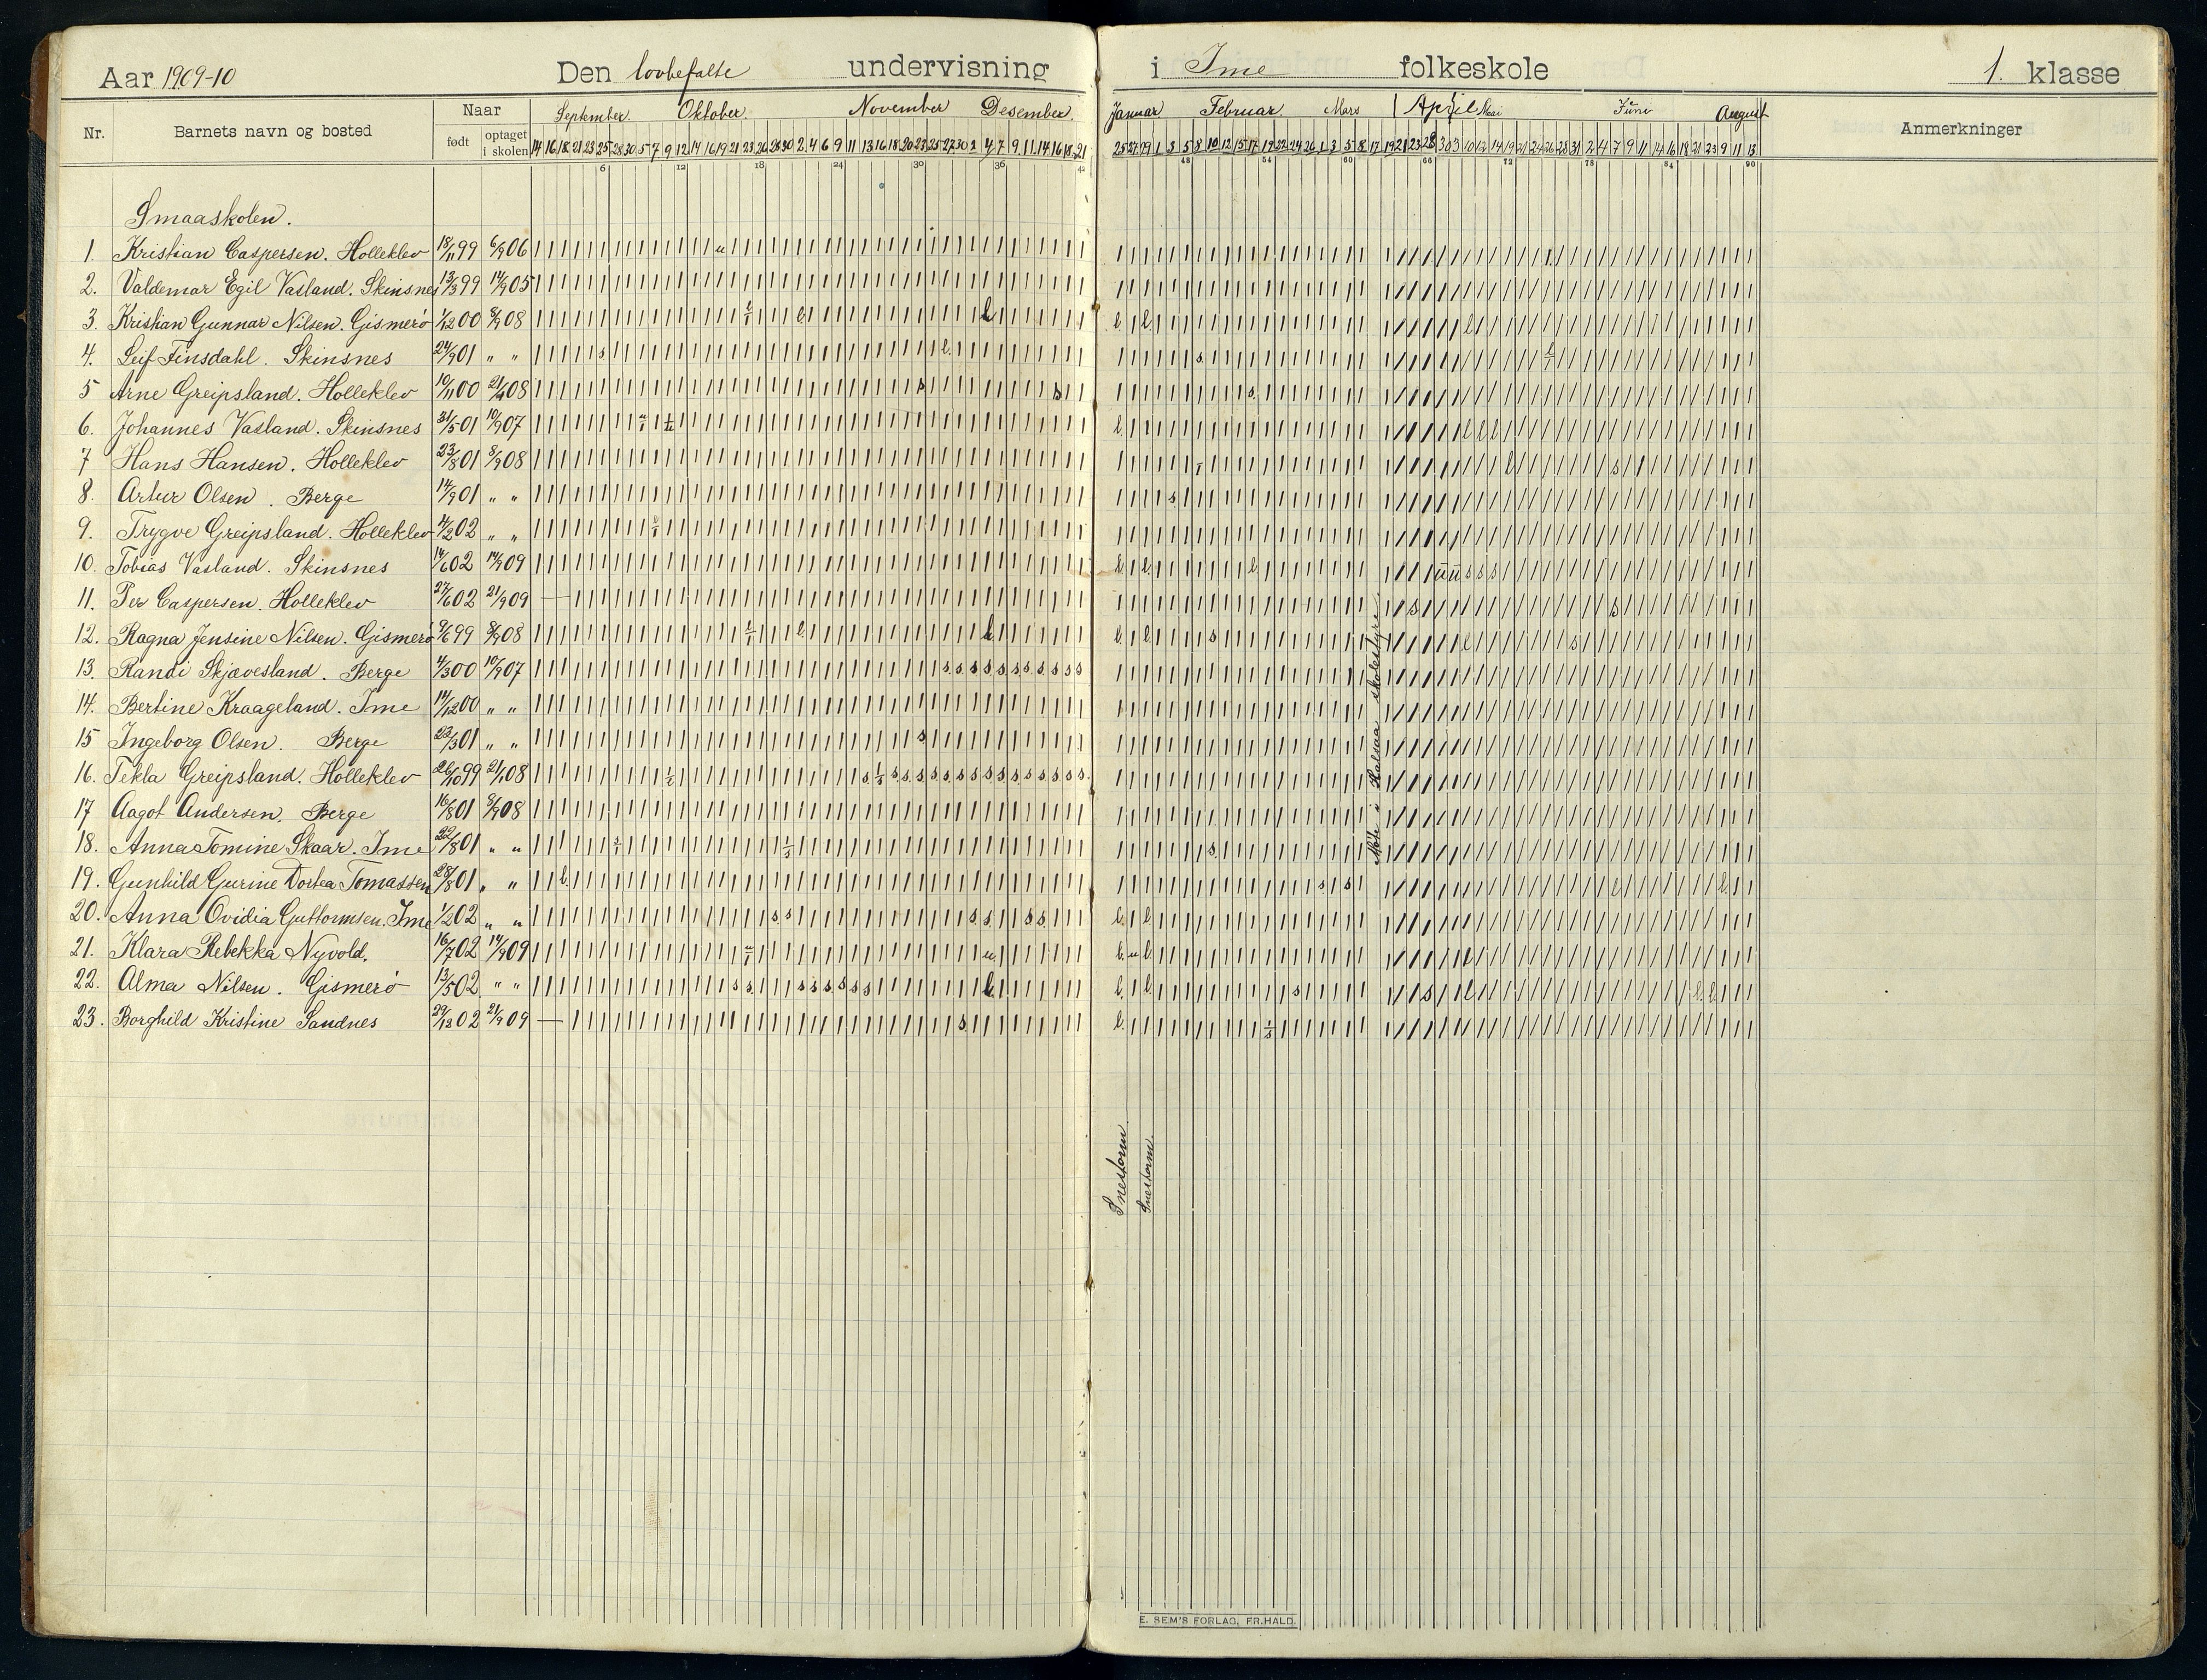 Aar 1909-10 Den lovbefalte undervisning i Ime folkeskole 1. klasse
Nr. Barnets navn og bosted Naar September. Oktober. November Desember. Januar Februar. Mars April Mai Juni August Anmerkninger
født optaget i skolen 14 16 18 21 23 25 28 30 5 7 9 12 14 16 19 21 23 26 28 30 2 4 6 9 11 13 16 18 20 23 25 27 30 2 4 7 9 11 14 16 18 21 25 27 29 1 3 5 8 10 12 15 17 19 22 24 26 1 3 5 8 17 19 21 23 28 30 3 10 12 14 19 21 24 26 28 31 2 4 7 9 11 14 16 18 21 23 9 11 13
6 12 18 24 30 36 42 48 54 60 66 72 78 84 90
Smaaskolen.
1. Kristian Caspersen. Holleklev 18/11 99 6/9 06
2. Valdemar Egil Vasland. Skinsnes 13/3 99 14/9 05
3. Kristian Gunnar Nilsen. Gismerö 1/12 00 8/9 08
4. Leif Finsdahl. Skinsnes 24/9 01 " "
5 Arne Greipsland. Holleklev 10/11 00 21/4 08
6. Johannes Vasland. Skinsnes 31/5 01 10/9 07
7 Hans Hansen. Holleklev 23/8 01 8/9 08
8. Artur Olsen. Berge 14/9 01 " "
9. Trygve Greipsland. Holleklev 4/2 02 " "
10. Tobias Vasland. Skinsnes 14/6 02 14/9 09
11. Per Caspersen. Holleklev 27/6 02 21/9 09
12. Ragna Jensine Nilsen. Gismerö 9/6 99 8/9 08
13. Randi Skjævesland. Berge 4/3 00 10/9 07
14. Bertine Kraageland. Ime 14/12 00 " "
15 Ingeborg Olsen. Berge 22/3 01 " "
16. Tekla Greipsland. Holleklev 26/10 99 21/1 08
17 Aagot Andersen. Berge 16/8 01 8/9 08
18. Anna Tomine Skaar. Ime 22/8 01 " "
19. Gunhild Gurine Dortea Tomassen 28/8 01 " "
20. Anna Ovidia Guttormsen. Ime 1/2 02 " "
21. Klara Rebekka Nyvold. 16/7 02 14/9 09
22. Alma Nilsen. Gismerö 13/5 02 " "
23. Borghild Kristine Sandnes 29/12 02 21/9 09
Møte i Halsaa skolestyre
Snestorm
Snestorm.
E. SEM'S FORLAG, FR.HALD.